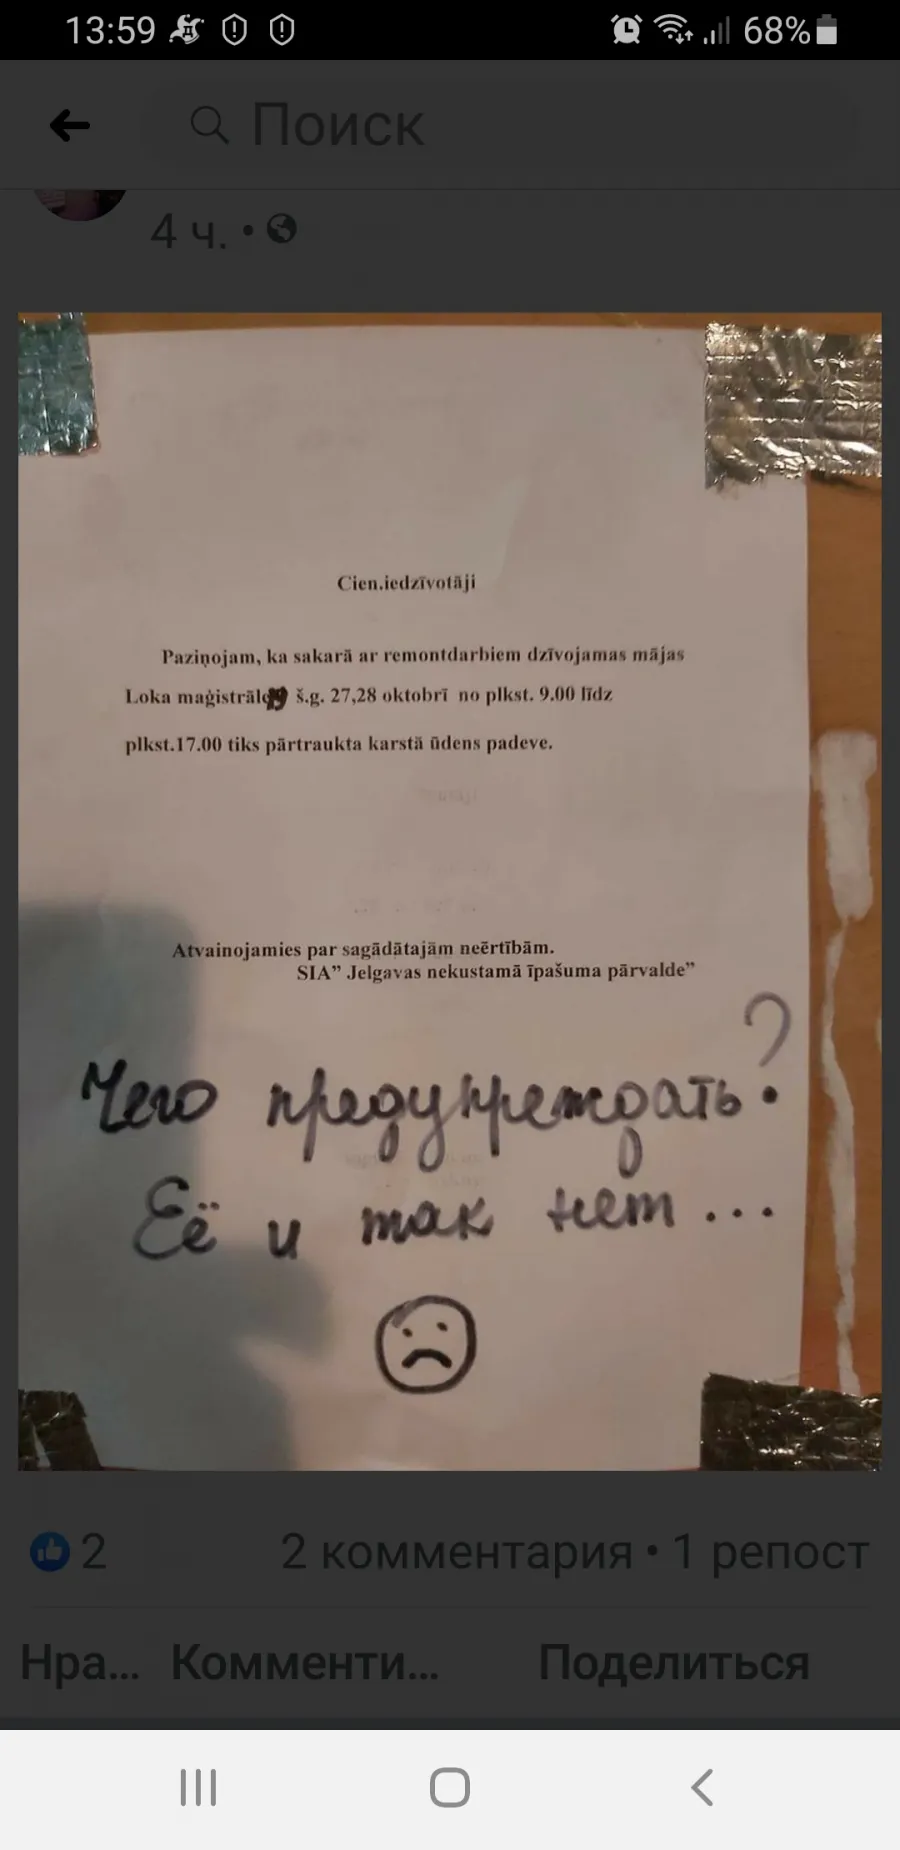 13:59
68%
Поиск
4 ч.
Cien.iedzīvotāji
Paziņojam, ka sakarā ar remontdarbiem dzīvojamas mājas
Loka maģistrāle š.g. 27,28 oktobrī no plkst. 9.00 līdz
plkst.17.00 tiks pārtraukta karstā ūdens padeve.
Atvainojamies par sagādātajām neērtībām.
SIA” Jelgavas nekustamā īpašuma pārvalde”
Чего предупреждать?
Её и так нет...
2
2 комментария • 1 репост
Нра... Комменти... Поделиться